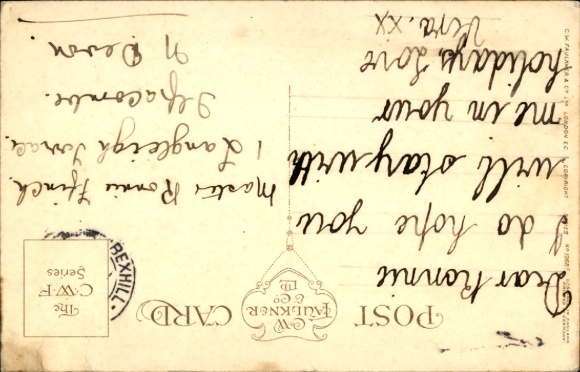 POST CARD
C.W. FAULKNER & Co. Ltd.
The
C.W.F
Series
BEXHILL
Dear Ronnie
I do hope you
will stay with
me in your
holidays, love
Vera. xx
Master Ronnie Ffinch
1 Langleigh Terrace,
Ilfracombe.
N Devon
C.W. FAULKNER & CO. LTD. LONDON. E.C. COPYRIGHT